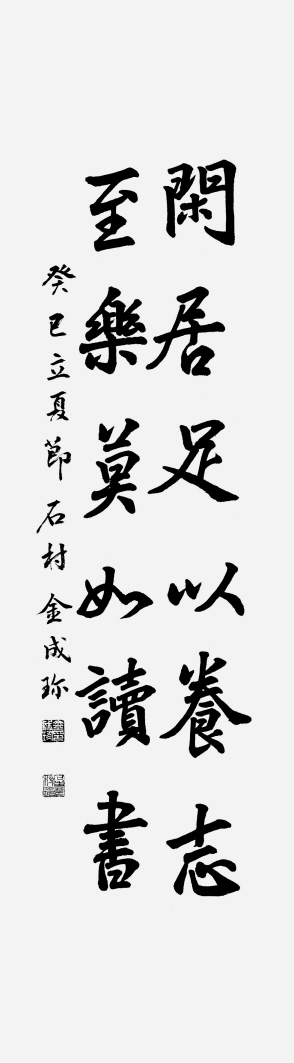 閑居足以養志
至樂莫如讀書
癸巳立夏節 石村 金成珎